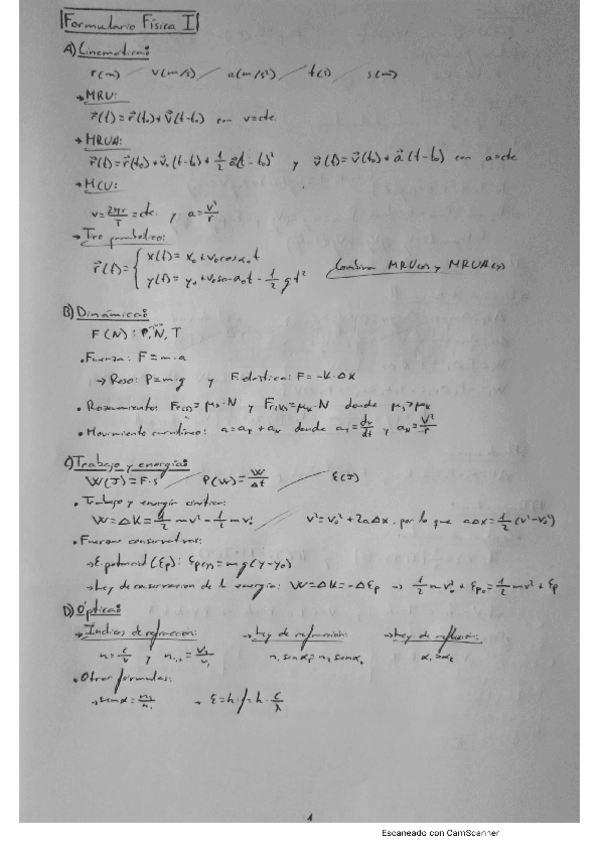 Formulario Física I
A) Cinemática:
r(m) / v(m/s) / a(m/s²) / t(s) / s(m)
→ MRU:
r⃗(t)=r⃗(t₀)+v⃗(t-t₀) con v=cte.
→ MRUA:
r⃗(t)=r⃗(t₀)+v⃗₀(t-t₀)+1/2 a⃗(t-t₀)² y v⃗(t)=v⃗(t₀)+a⃗(t-t₀) con a=cte
→ MCU:
v=2πr/T=cte. y a=v²/r
→ Tiro parabólico:
r⃗(t)= { x(t)=x₀+v₀cosα₀t
y(t)=y₀+v₀senα₀t-1/2 gt² Combina MRU(x) y MRUA(y)
B) Dinámica:
F(N): P, N, T
• Fuerza: F=m·a
→ Peso: P=m·g y F.elástica: F=-K·Δx
• Rozamiento: Fr(s)=μs·N y Fr(k)=μk·N donde μs>μk
• Movimiento curvilíneo: a=aT+aN donde aT=dv/dt y aN=v²/r
C) Trabajo y energía:
W(J)=F·s / P(W)=W/Δt / E(J)
• Trabajo y energía cinética:
W=ΔK=1/2 mv²-1/2 mv₀² / v²=v₀²+2aΔx, por lo que aΔx=1/2(v²-v₀²)
• Fuerzas conservativas:
→ E.potencial (Ep): Ep(y)=mg(y-y₀)
→ Ley de conservación de la energía: W=ΔK=-ΔEp → 1/2 mv₀²+Ep₀=1/2 mv²+Ep
D) Óptica:
→ Índices de refracción: → Ley de refracción: → Ley de reflexión:
n=c/v y n₁,₂=v₂/v₁ n₁senα₁=n₂senα₂
• Otras fórmulas:
→ senα=n₂/n₁ → E=h·f=h·c/λ
1
Escaneado con CamScanner